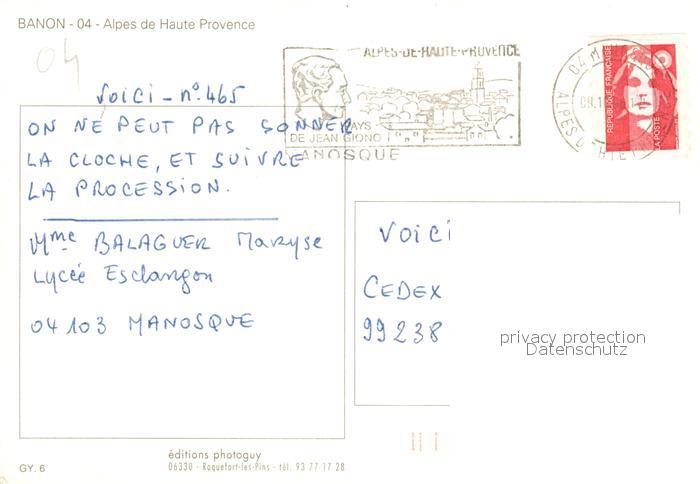 BANON - 04 - Alpes de Haute Provence
04
VOICI - n° 465
ON NE PEUT PAS SONNER
LA CLOCHE, ET SUIVRE
LA PROCESSION.
Mme BALAGUER Maryse
Lycée Esclangon
04103 MANOSQUE
ALPES-DE-HAUTE-PROVENCE
PAYS
DE JEAN GIONO
MANOSQUE
04 M
ALPES D
RÉPUBLIQUE FRANÇAISE
LA POSTE
VOICI
CEDEX
99238
privacy protection
Datenschutz
éditions photoguy
06330 - Roquefort-les-Pins - tél. 93 77 17 28
GY. 6